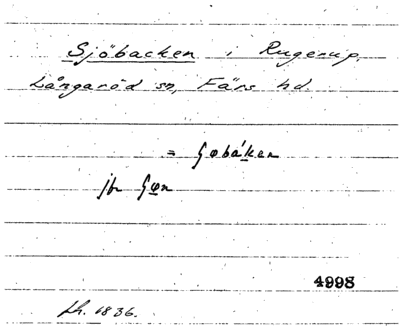 Sjöbacken i Rugerup,
Långaröd sn, Färs hd.
= ʃøbáken
jfr ʃøn
4998
Lh. 1836.